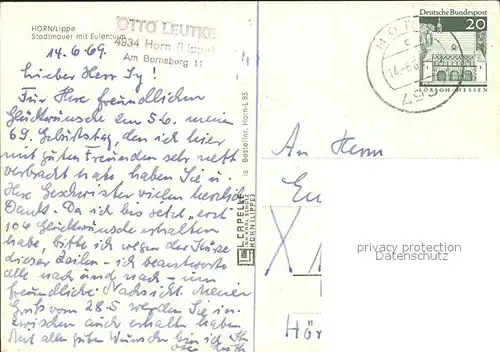 HORN/Lippe
Stadtmauer mit Eulenturm
OTTO LEUTKE
4934 Horn (Lippe)
Am Bornsberg 11
14.6.69.
Lieber Herr Ty!
Für Ihre freundlichen
Glückwünsche zum 5.6. mein
69. Geburtstag, den ich hier
mit guten Freunden sehr nett
verbracht habe, haben Sie u.
Ihre Geschwister vielen herzlich
Dank. Da ich bis jetzt "erst"
104 Glückwünsche erhalten
habe, bitte ich wegen der Kürze
dieser Zeilen - ich beantworte
alle nach und nach - um
freundliche Nachsicht. Meinen
Gruß vom 28.5 werden Sie in-
zwischen auch erhalten haben
Mit allen guten Wünschen bin ich Ihr
Otto
is Bestellnr. Horn-L 83
L. CAPELLE
INH. KARL SCHOLZ
HORN (LIPPE)
Deutsche Bundespost
20
LORSCH/HESSEN
HORN
14.-6.6
493
An Herrn
Hör
privacy protection
watermark